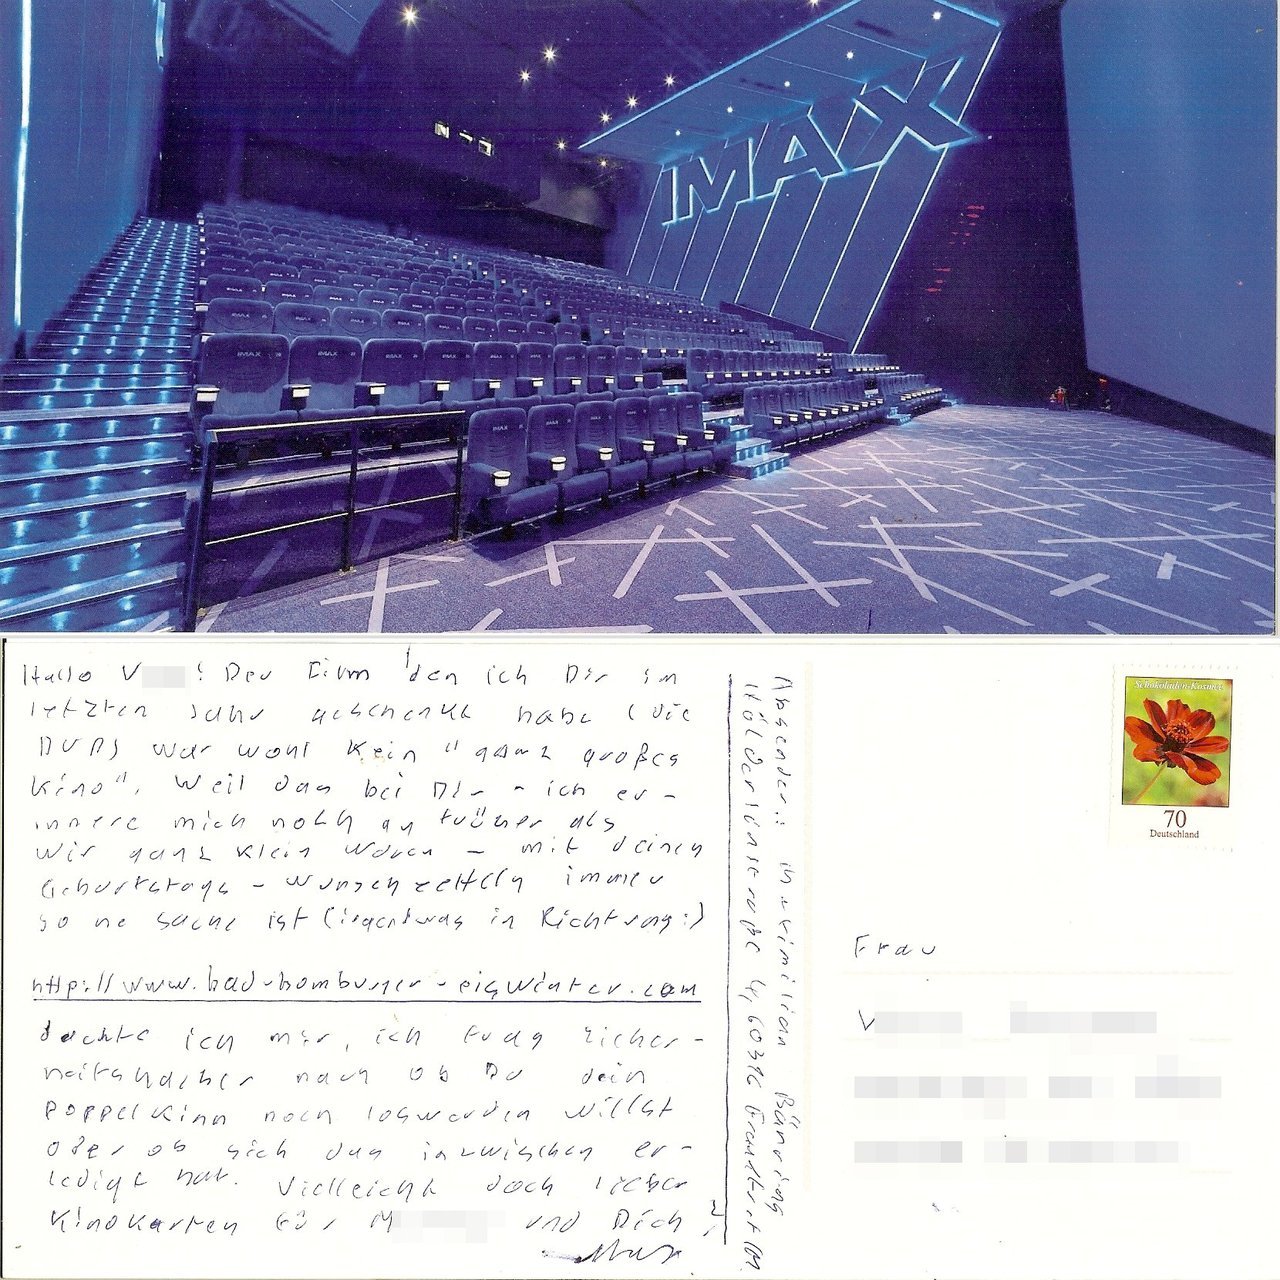 IMAX
IMAX
IMAX
IMAX
Hallo V ! Der Film den ich Dir im
letzten Jahr geschenkt habe (die
DVD) war wohl kein "ganz großes
Kino". Weil das bei Dir - ich er-
innere mich noch an früher als
wir ganz klein waren - mit deinen
Geburtstags-Wunschzetteln immer
so ne Sache ist (irgendwas in Richtung:)
http://www.bad-homburger-eiswinter.com
dachte ich mir, ich frag sicher-
heitshalber nach ob Du dein
Doppelkinn noch loswerden willst
oder ob sich das inzwischen er-
ledigt hat. Vielleicht doch lieber
Kinokarten für M und Dich?
Max
Absender: Maximilian Bähring
Hölderlinstraße 4, 60316 Frankfurt/M
Schokoladen-Kosmee
70
Deutschland
Frau
V